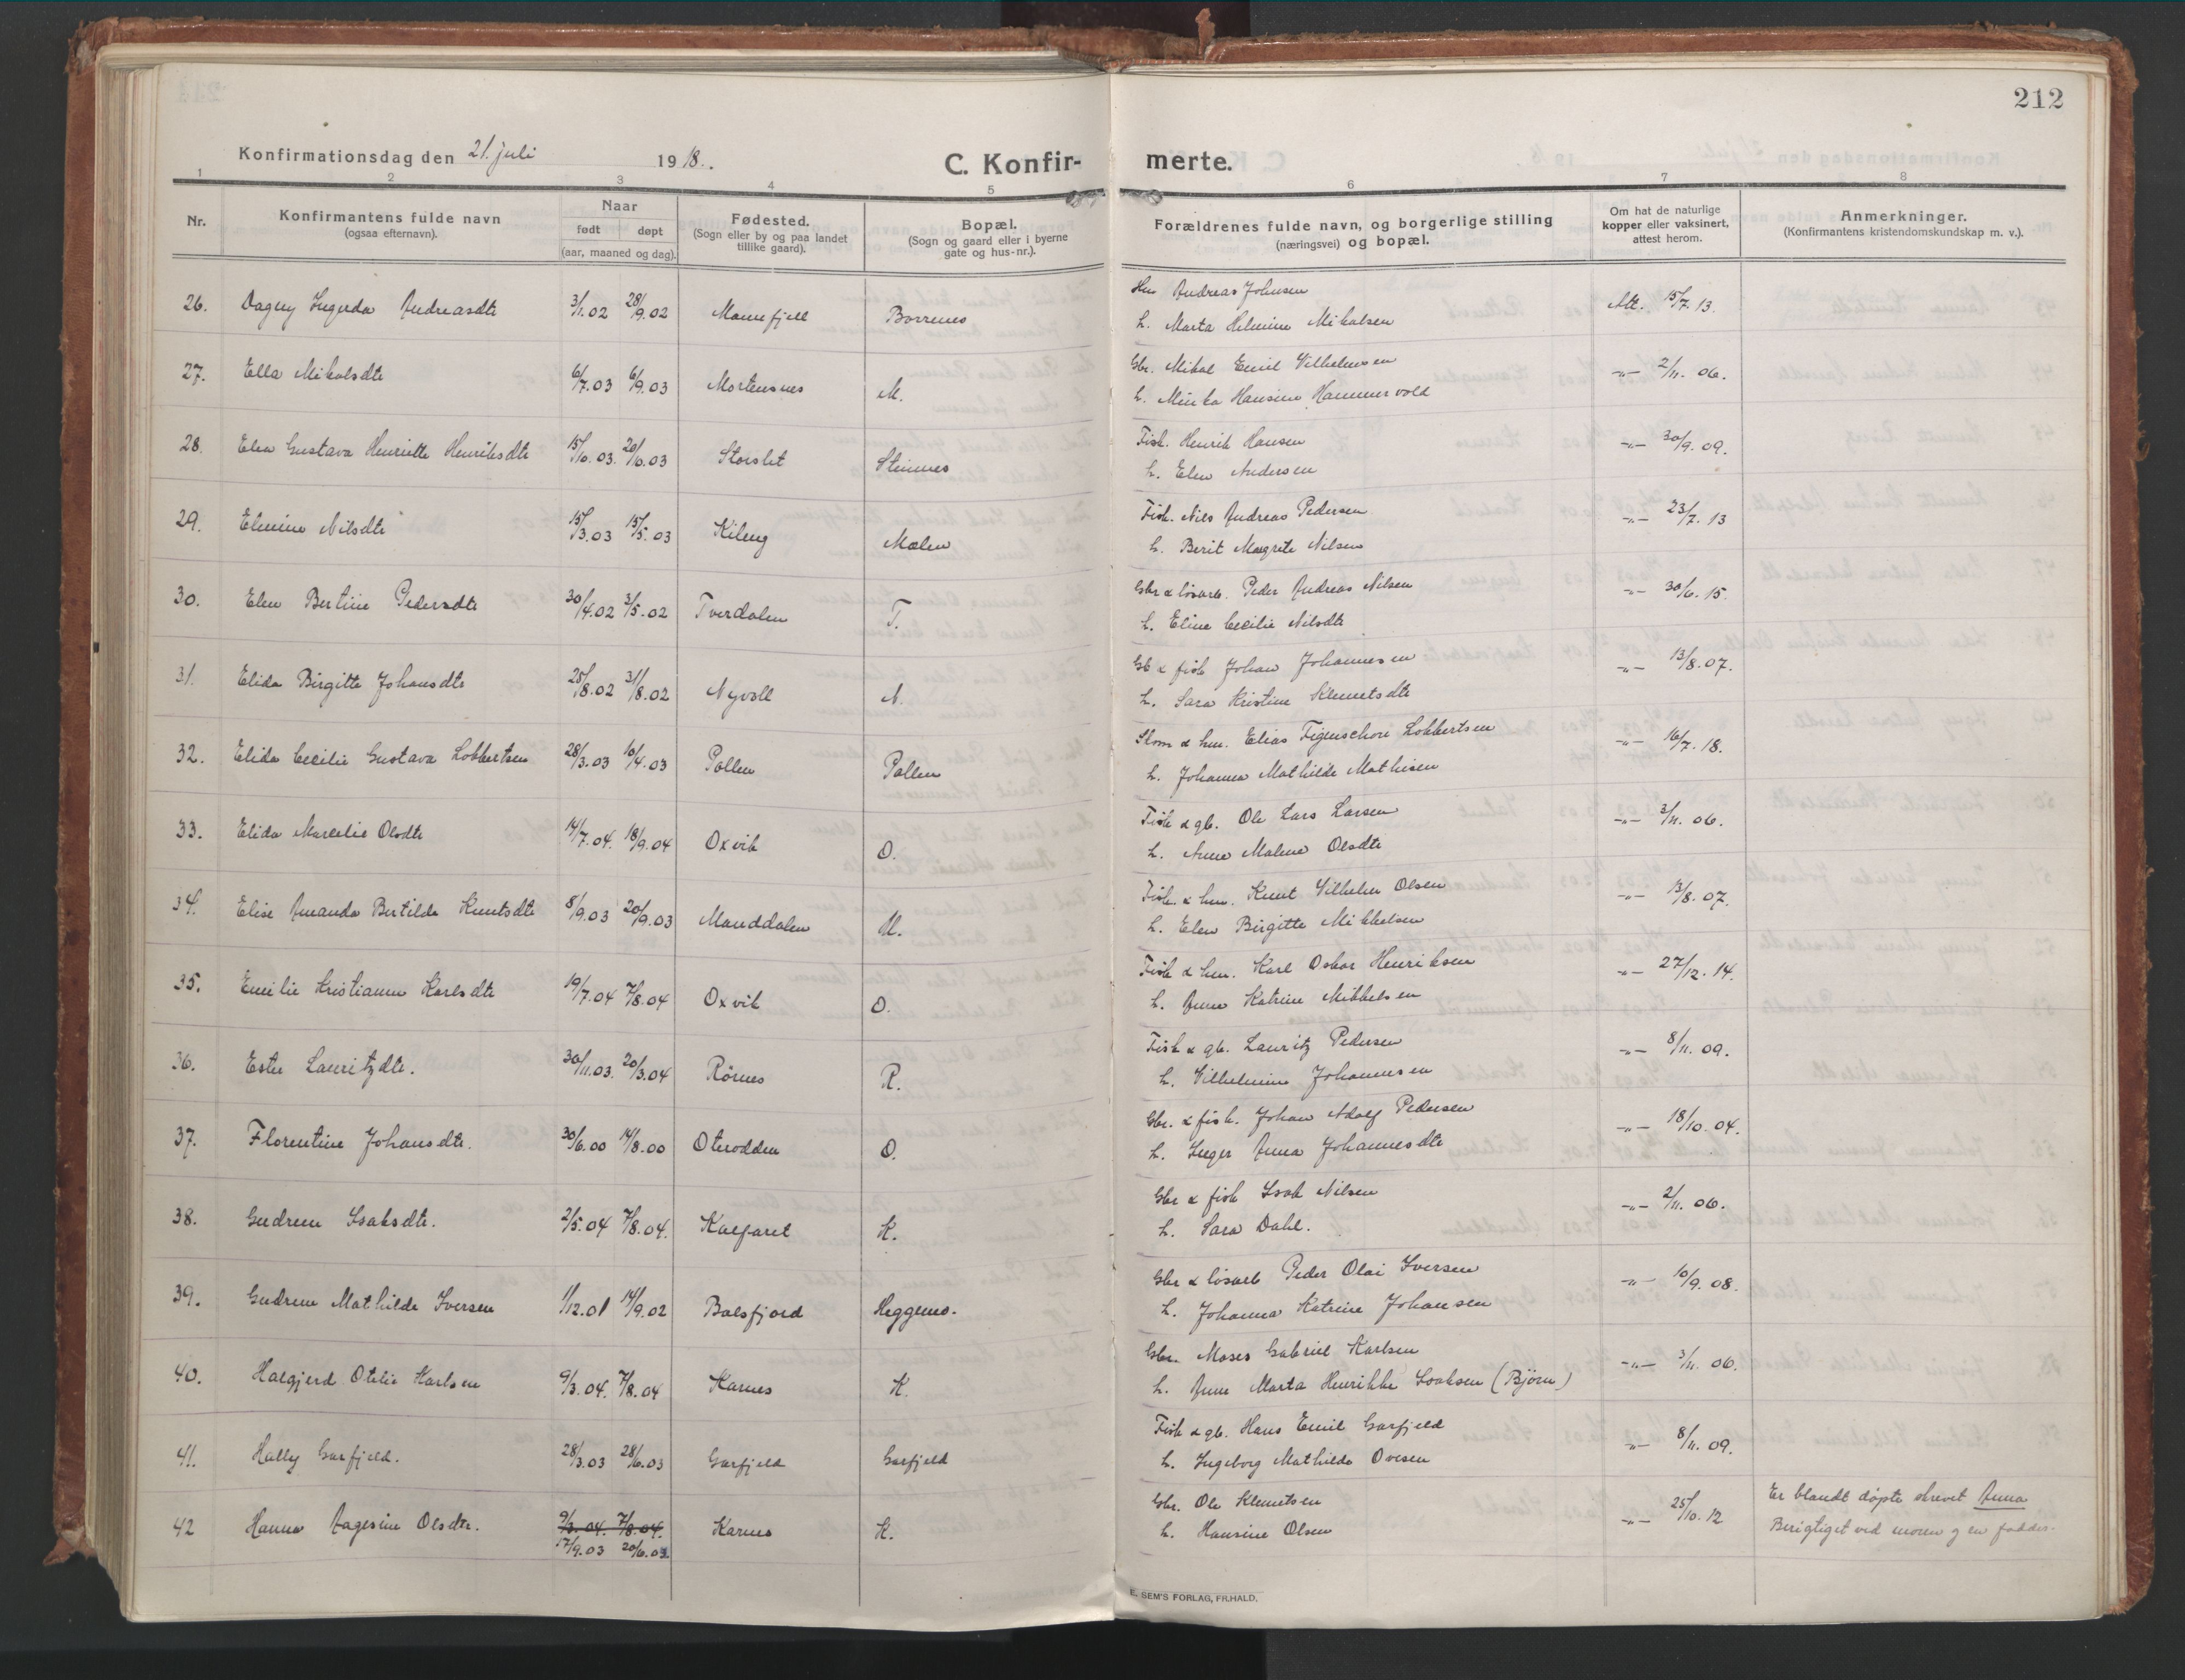 212
Konfirmationsdag den 21. juli 1918.
C. Konfir-
merte.
1 2 3 4 5 6 7 8
Nr.
Konfirmantens fulde navn
(ogsaa efternavn).
Naar
født døpt
(aar, maaned og dag).
Fødested.
(Sogn eller by og paa landet
tillike gaard).
Bopæl.
(Sogn og gaard eller i byerne
gate og hus-nr.).
Forældrenes fulde navn, og borgerlige stilling
(næringsvei) og bopæl.
Om hat de naturlige
kopper eller vaksinert,
attest herom.
Anmerkninger.
(Konfirmantens kristendomskundskap m. v.).
26. Dagny Ingerda Andreasdtr 3/1.02 28/9.02 Mannfjell Borrenes
Hus Andreas Johnsen Att. 15/7.13.
h. Marta Helmine Mikalsen
27. Ella Mikalsdtr 6/7.03 6/9.03 Mortensnes M.
Gbr. Mikal Emil Vilhelmsen -"- 2/11.06.
h. Minka Hansine Hammervold
28. Elen Gustava Henriette Henriksdtr 15/6.03. 20/6.03 Storslet Steinnes
Fisk. Henrik Hansen -"- 30/9.09.
h. Elen Andersen
29. Elmine Nilsdtr 15/3.03 15/5.03 Kileng Malen
Fisk. Nils Andreas Pedersen -"- 23/7.13
h. Berit Margrete Nilsen
30. Elen Bertine Pedersdtr 30/4.02 3/5.02 Tverdalen T.
Gbr & løsarb. Peder Andreas Nilsen -"- 30/6.15.
h. Eline Cecilie Nilsdtr
31. Elida Birgitte Johansdtr 25/8.02 31/8.02 Nyvoll N.
Gb & fisk Johan Johannesen -"- 13/8.07.
h. Sara Kristine Klemetsdtr
32. Elida Cecilie Gustava Lobbertsen 28/3.03 10/4.03 Pollen Pollen
Skom & hm. Elias Figenschou Lobbertsen -"- 16/7.18.
h. Johanna Mathilde Mathisen
33. Elida Marcelie Olsdtr 14/7.04. 18/9.04 Oxvik O.
Fisk & gb. Ole Lars Larsen -"- 3/11.06.
h. Anne Malene Olsdtr
34. Elise Amanda Bertilda Knutsdtr 8/9.03 20/9.03 Manddalen M.
Fisk. & hm. Knut Vilhelm Olsen -"- 13/8.07.
h. Elen Birgitte Mikkelsen
35. Emilie Kristianna Karlsdtr 19/7.04 7/8.04 Oxvik O.
Fisk & hm. Karl Oskar Henriksen -"- 27/12.14.
h. Anne Katrine Mikkelsen
36. Ester Lauritzdtr. 30/11.03. 20/3.04 Rörnes R.
Fisk & gb. Lauritz Pedersen -"- 8/11.09.
h. Vilhelmine Johannesen
37. Florentine Johansdtr. 30/6.00 14/8.00 Oterodden O.
Gbr. & fisk. Johan Adolf Pedersen -"- 18/10.04.
h. Inger Anna Johannesdtr
38. Gudrun Isaksdtr. 2/5.04 7/8.04. Kalfaret K.
Gbr & fisk Isak Nilsen -"- 2/11.06.
h. Sara Dahl.
39. Gudrun Mathilde Iversen 1/12.01 14/9.02 Balsfjord Heggemo.
Gbr & løsarb Peder Olai Iversen -"- 10/9.08.
h. Johanna Katrine Johansen
40. Halgjerd Otelie Karlsen 9/3.04. 7/8.04 Karnes K.
Gbr. Moses Gabriel Karlsen -"- 3/11.06.
h. Anne Marta Henrikke Isaksen (Björn)
41. Hally Garfjeld. 28/3.03 28/6.03 Garfjeld Garfjeld
Fisk & gb. Hans Emil Garfjeld -"- 8/11.09.
h. Ingeborg Mathilde Ovesen
42 Hanna Aagesine Olsdtr. 9/3.04. 7/8.04. Karnes K.
17/9.03 20/6.03.
Gbr. Ole Klemetsen -"- 25/10.12 Er blandt døpte skrevet Anna
h. Hansine Olsen Berigtiget ved moren og en fadder.
E. SEM'S FORLAG, FR.HALD.